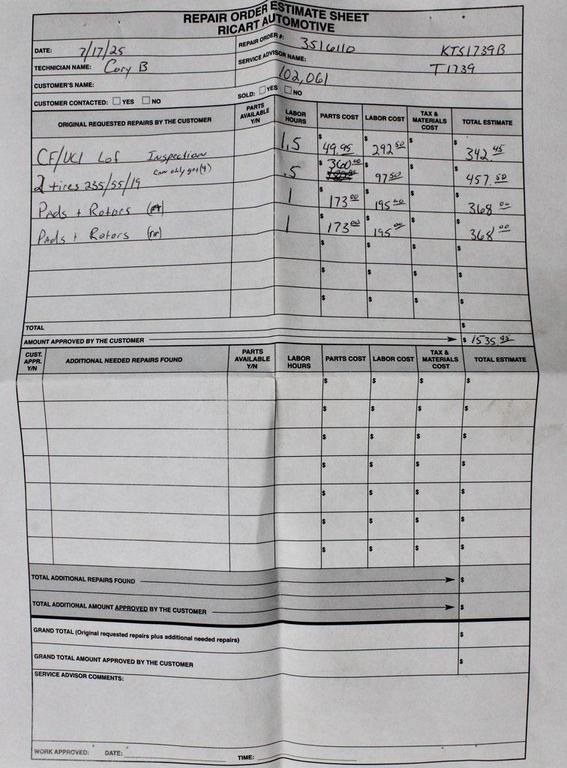 REPAIR ORDER ESTIMATE SHEET
RICART AUTOMOTIVE
DATE: 7/17/25 REPAIR ORDER #: 3516110 KTS1739B
TECHNICIAN NAME: Cory B SERVICE ADVISOR NAME: T1739
CUSTOMER'S NAME: 102,061
CUSTOMER CONTACTED: YES NO SOLD: YES NO
ORIGINAL REQUESTED REPAIRS BY THE CUSTOMER PARTS AVAILABLE Y/N LABOR HOURS PARTS COST LABOR COST TAX & MATERIALS COST TOTAL ESTIMATE
CF/UCI Lof Inspection 1.5 $ 49.95 $ 292 50 $ $ 342 45
2 tires 235/55/19 can only get (4) .5 $ 360 00 $ 97 50 $ $ 457.50
Pads + Rotors 1 $ 173 00 $ 195 00 $ $ 368 00
Pads + Rotors 1 $ 173 00 $ 195 00 $ $ 368 00
$ $ $ $
$ $ $ $
$ $ $ $
TOTAL $
AMOUNT APPROVED BY THE CUSTOMER $ 1535 95
CUST. APPR. Y/N ADDITIONAL NEEDED REPAIRS FOUND PARTS AVAILABLE Y/N LABOR HOURS PARTS COST LABOR COST TAX & MATERIALS COST TOTAL ESTIMATE
$ $ $ $
$ $ $ $
$ $ $ $
$ $ $ $
$ $ $ $
$ $ $ $
$ $ $ $
TOTAL ADDITIONAL REPAIRS FOUND $
TOTAL ADDITIONAL AMOUNT APPROVED BY THE CUSTOMER $
GRAND TOTAL (Original requested repairs plus additional needed repairs) $
GRAND TOTAL AMOUNT APPROVED BY THE CUSTOMER $
SERVICE ADVISOR COMMENTS:
WORK APPROVED: DATE: TIME: